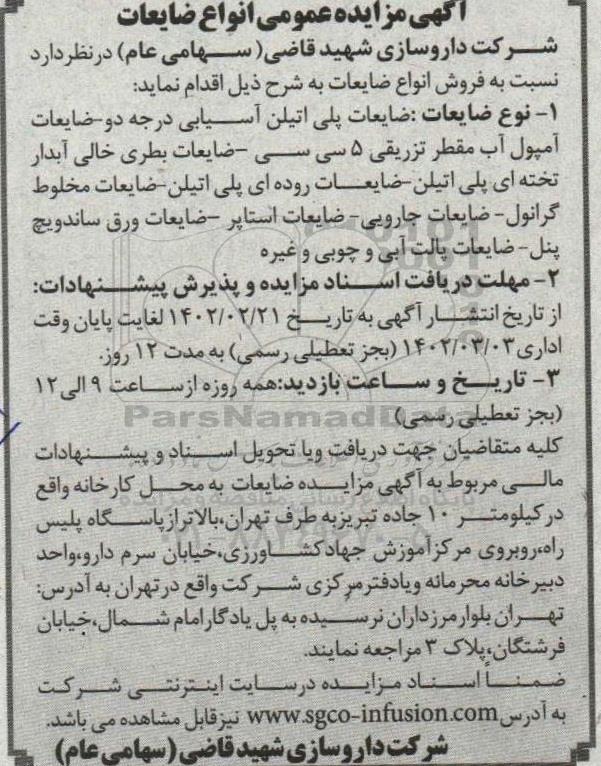 آگهی مزایده عمومی انواع ضایعات
شرکت داروسازی شهید قاضی( سهامی عام) درنظر دارد
نسبت به فروش انواع ضایعات به شرح ذیل اقدام نماید:
۱- نوع ضایعات :ضایعات پلی اتیلن آسیابی درجه دو-ضایعات
آمپول آب مقطر تزریقی ۵ سی سی –ضایعات بطری خالی آبدار
تخته ای پلی اتیلن-ضایعات روده ای پلی اتیلن-ضایعات مخلوط
گرانول- ضایعات جارویی- ضایعات استاپر –ضایعات ورق ساندویچ
پنل- ضایعات پالت آبی و چوبی و غیره
۲- مهلت دریافت اسناد مزایده و پذیرش پیشنهادات:
از تاریخ انتشار آگهی به تاریخ ۱۴۰۲/۰۲/۲۱ لغایت پایان وقت
اداری ۱۴۰۲/۰۳/۰۳ (بجز تعطیلی رسمی) به مدت ۱۲ روز.
۳- تاریخ و ساعت بازدید:همه روزه از ساعت ۹ الی ۱۲
(بجز تعطیلی رسمی)
ParsNamadData
کلیه متقاضیان جهت دریافت ویا تحویل اسناد و پیشنهادات
مالی مربوط به آگهی مزایده ضایعات به محل کارخانه واقع
در کیلومتر ۱۰ جاده تبریز به طرف تهران،بالاتر از پاسگاه پلیس
راه،روبروی مرکز آموزش جهاد کشاورزی،خیابان سرم دارو،واحد
دبیرخانه محرمانه ویا دفتر مرکزی شرکت واقع در تهران به آدرس:
تهران بلوار مرزداران نرسیده به پل یادگار امام شمال،خیابان
فرشتگان،پلاک ۳ مراجعه نمایند.
ضمناً اسناد مزایده در سایت اینترنتی شرکت
به آدرس www.sgco-infusion.com نیز قابل مشاهده می باشد.
شرکت داروسازی شهید قاضی (سهامی عام)